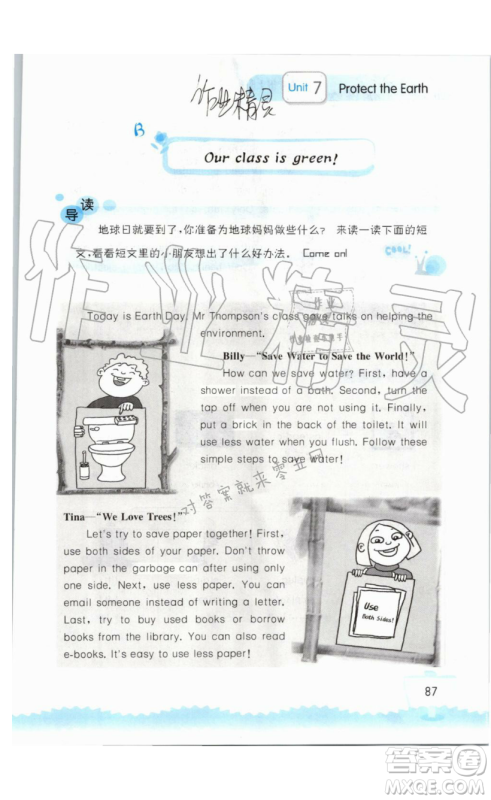 Unit 7 Protect the Earth
作业精灵
B
Our class is green!
导读
地球日就要到了,你准备为地球妈妈做些什么? 来读一读下面的短
文,看看短文里的小朋友想出了什么好办法。 Come on!
COOL!
Today is Earth Day. Mr Thompson's class gave talks on helping the
environment.
Billy—“Save Water to Save the World!”
How can we save water? First, have a
shower instead of a bath. Second, turn the
tap off when you are not using it. Finally,
put a brick in the back of the toilet. It will
use less water when you flush. Follow these
simple steps to save water!
对答案就来零五网
Tina—“We Love Trees!”
Let's try to save paper together! First,
use both sides of your paper. Don't throw
paper in the garbage can after using only
one side. Next, use less paper. You can
email someone instead of writing a letter.
Last, try to buy used books or borrow
books from the library. You can also read
e-books. It's easy to use less paper!
Use
Both Sides!
87
作业精灵
答案圈
MXQE.COM